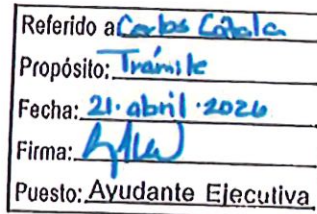 Referido a Carlos
Propósito: Trámite
Fecha: 21. abril. 2026
Firma:
Puesto: Ayudante Ejecutiva